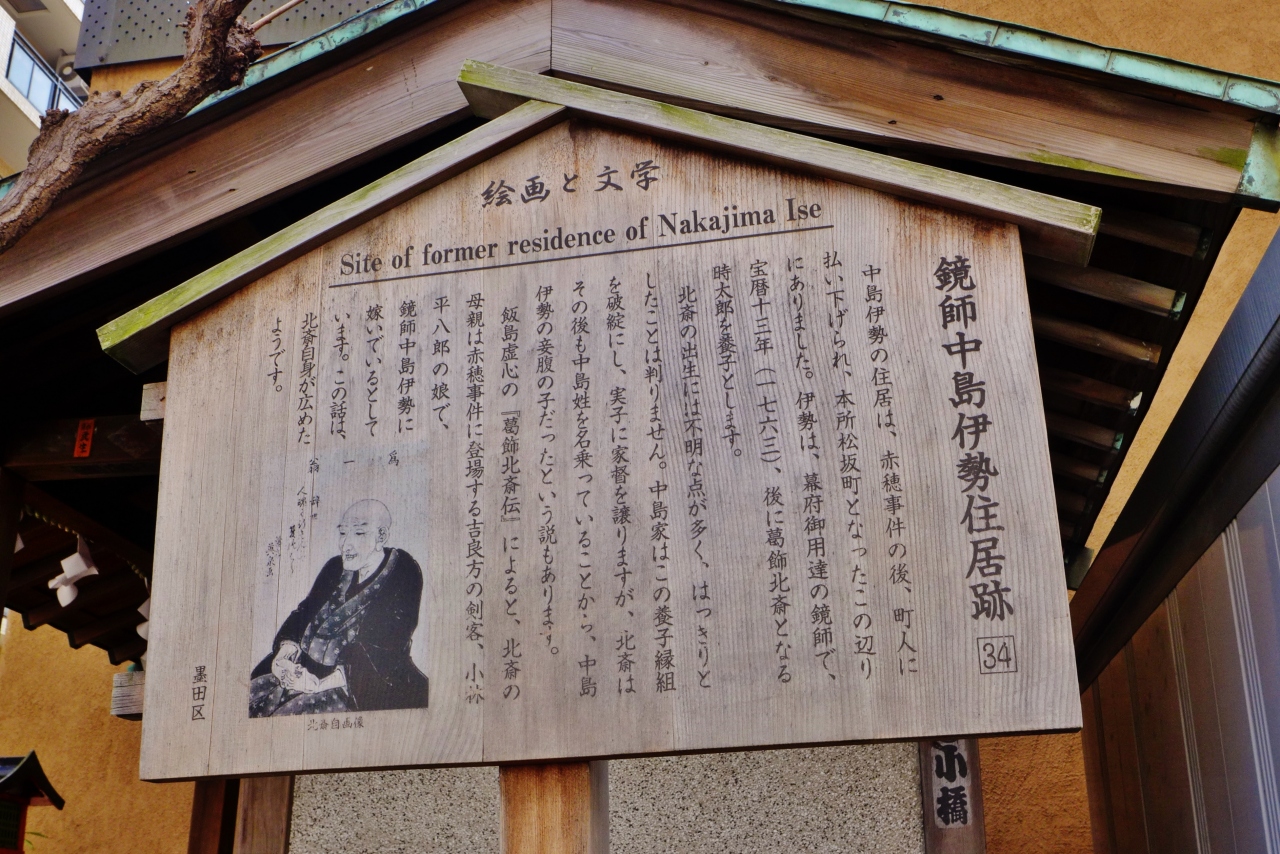 絵画と文学
Site of former residence of Nakajima Ise
鏡師中島伊勢住居跡
34
中島伊勢の住居は、赤穂事件の後、町人に
払い下げられ、本所松坂町となったこの辺り
にありました。伊勢は、幕府御用達の鏡師で、
宝暦十三年（一七六三）、後に葛飾北斎となる
時太郎を養子とします。
北斎の出生には不明な点が多く、はっきりと
したことは判りません。中島家はこの養子縁組
を破綻にし、実子に家督を譲りますが、北斎は
その後も中島姓を名乗っていることから、中島
伊勢の妾腹の子だったという説もあります。
飯島虚心の『葛飾北斎伝』によると、北斎の
母親は赤穂事件に登場する吉良方の剣客、小林
平八郎の娘で、
鏡師中島伊勢に
嫁いでいるとして
います。この話は、
北斎自身が広めた
ようです。
北斎自画像
墨田区
小橋